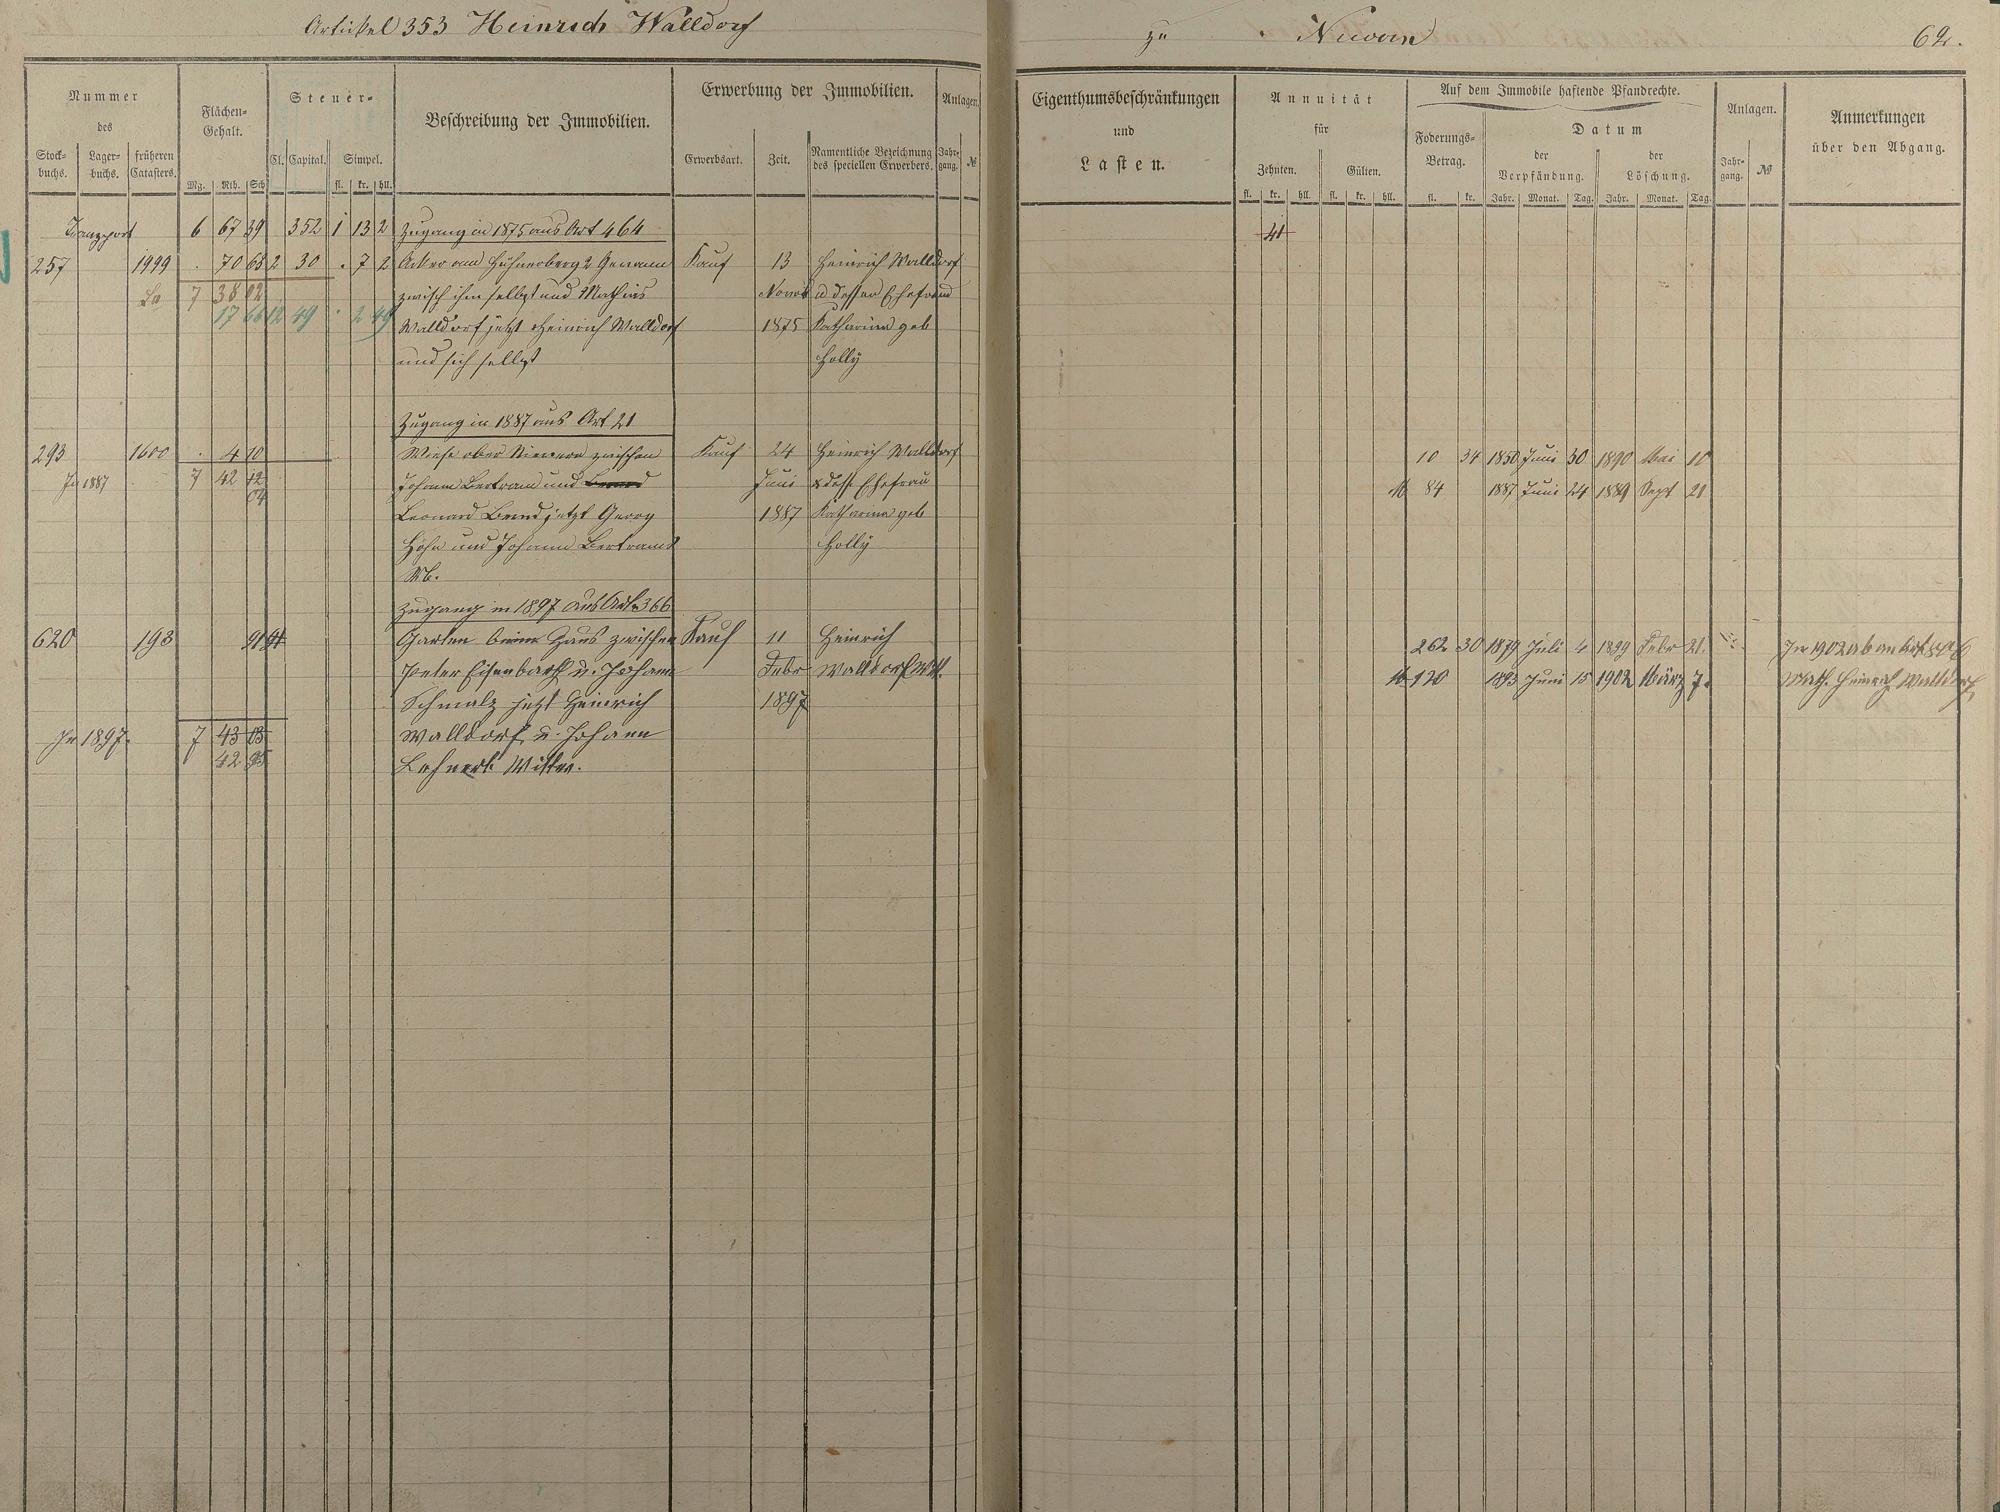 Artikel 353 Heinrich Walldorf zu 62.
Nummer des
Stock-buchs. Lager-buchs. früheren Catasters.
Flächen-Gehalt.
Mg. Rth. Sch.
Steuer-
Cl. Capital. Simpel.
fl. kr. hll.
Beschreibung der Immobilien.
Erwerbung der Immobilien.
Erwerbsart. Zeit. Namentliche Bezeichnung des speciellen Erwerbers.
Anlagen.
Jahr-gang. №
Eigenthumsbeschränkungen und Lasten.
Annuität für
Zehnten. Gülten.
fl. kr. hll. fl. kr. hll.
Auf dem Immobile haftende Pfandrechte.
Foderungs-Betrag.
fl. kr.
Datum
der Verpfändung. der Löschung.
Jahr. Monat. Tag. Jahr. Monat. Tag.
Anlagen.
Jahr-gang. №
Anmerkungen über den Abgang.
Transport 6 67 39 352 1 13 2 Zugang in 1875 aus Art 464 41
257 1999 . 70 63 2 30 . 7 2 Acker am Hühnerberg 2 Gewann Kauf 13 Heinrich Walldorf
7 38 02 zwisch ihm selbst und Mathias Novbr u dessen Ehefrau
17 66 12 49 . 2 49 Walldorf jetzt Heinrich Walldorf 1875 Katharina geb
und sich selbst Holly
Zugang in 1887 aus Art 21
293 1600 . 4 10 Wiese ober Nievern zwischen Kauf 24 Heinrich Walldorf 10 34 1850 Juni 30 1890 Mai 10
In 1887 7 42 12 Johann Bertram und Juni & dess Ehefrau M 84 1887 Juni 24 1889 Sept 21
04 Leonard Bernd jetzt Georg 1887 Katharina geb
Höhn und Johann Bertrams Holly
Wb.
Zugang in 1897 aus Art. 366
620 193 91 Garten beim Haus zwischen Kauf 11 Heinrich 262 30 1879 Juli 4 1899 Febr 21.
Peter Eisenbarth u. Johann Febr Walldorf Wtt. M 120 1893 Juni 15 1902 März 7.
Schmalz jetzt Heinrich 1897
In 1902 ab an Art
Math. Heinrich Walldorf
In 1897. 7 43 03 Walldorf u. Johann
42 95 Lehnert Wittwe.